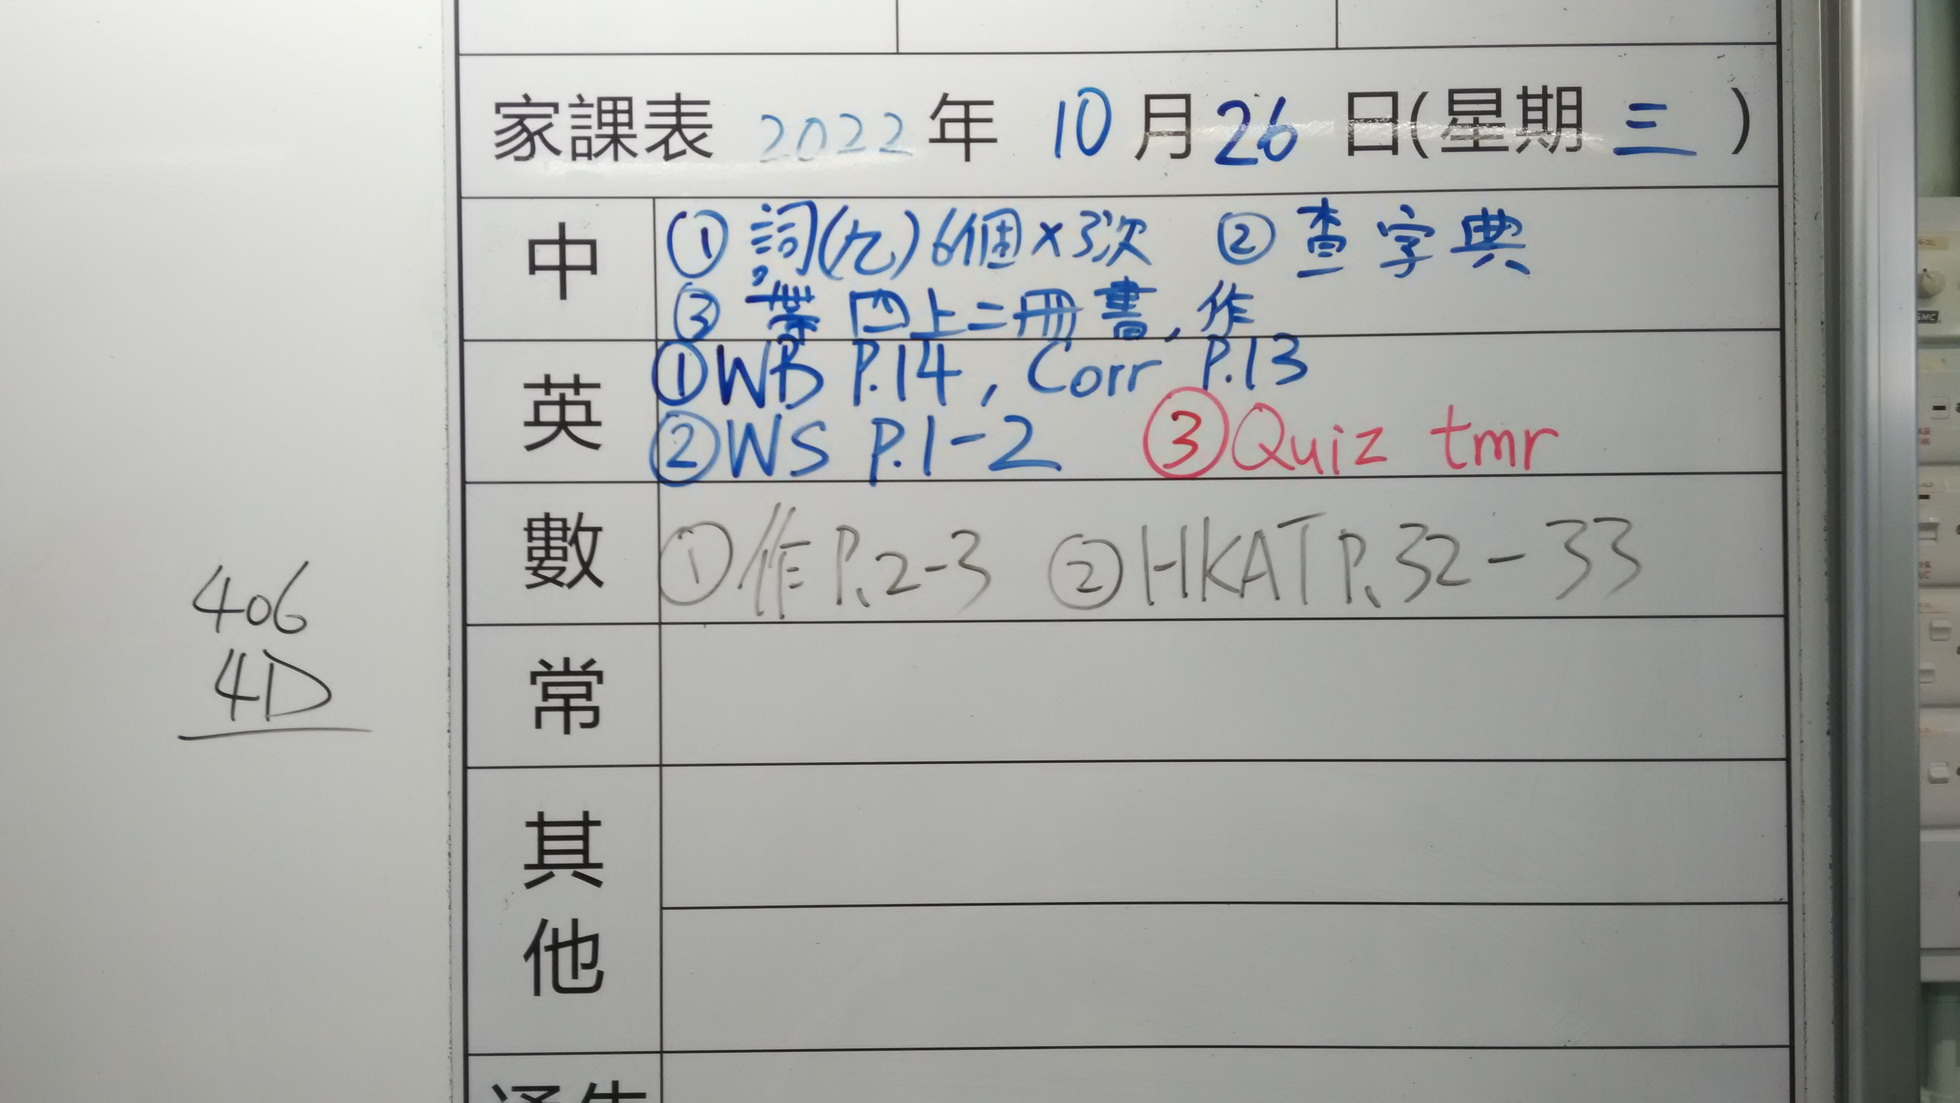 家課表 2022年 10月26日(星期三)
中
①詞(九)6個×3次 ②查字典
③帶四上二冊書,作
英
①WB P.14, Corr P.13
②WS P.1-2 ③Quiz tmr
數
①作P.2-3 ②HKAT P.32-33
常
其他
406
4D